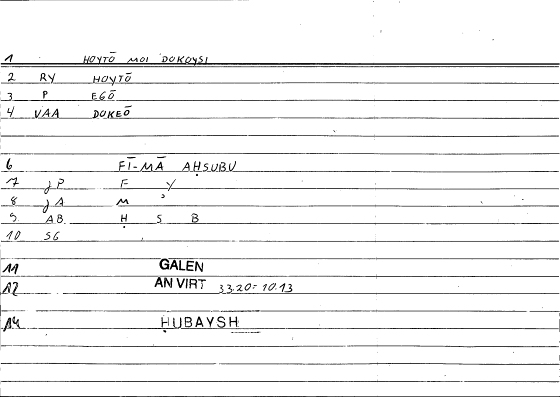 1 HOYTŌ MOI DOKOYSI
2 RY HOYTŌ
3 P EGŌ
4 VAA DOKEŌ
6 FĪ-MĀ AḤSUBU
7 JP F Y
8 JA M ʾ
9 AB Ḥ S B
10 SG
11 GALEN
12 AN VIRT 33.20 = 10.13
14 ḤUBAYSH